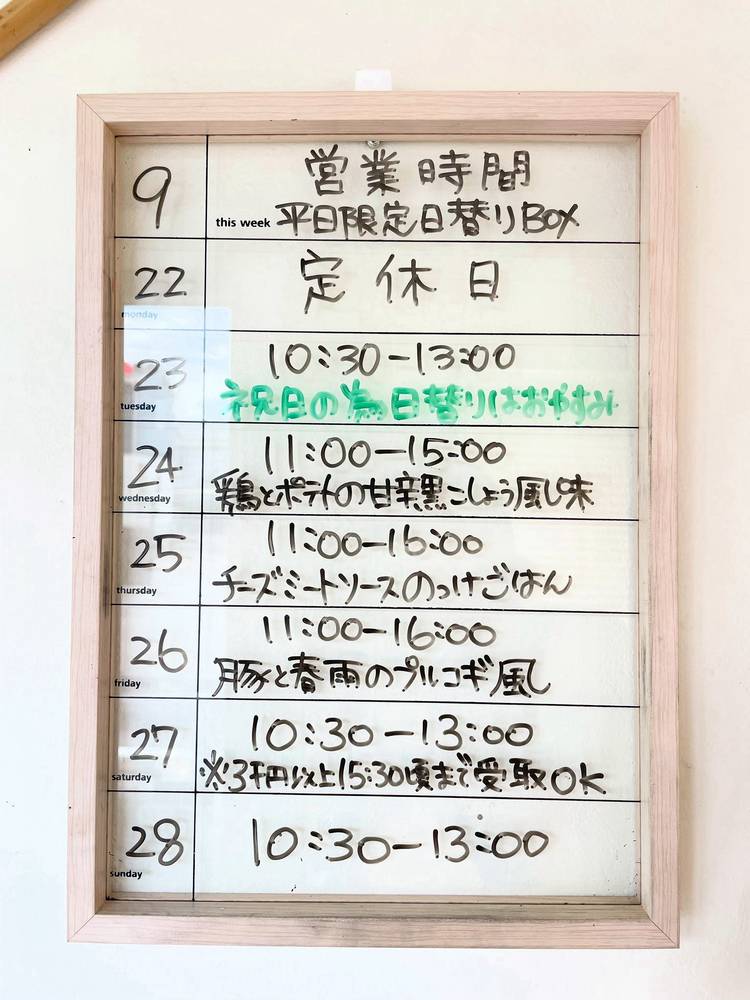 9
営業時間
this week 平日限定日替りBOX
22
定休日
monday
23
10:30-13:00
tuesday
祝日の為日替りはおやすみ
24
11:00-15:00
wednesday
鶏とポテトの甘辛黒こしょう風味
25
11:00-16:00
thursday
チーズミートソースのっけごはん
26
11:00-16:00
friday
豚と春雨のプルコギ風
27
10:30-13:00
saturday
※3千円以上15:30頃まで受取OK
28
10:30-13:00
sunday